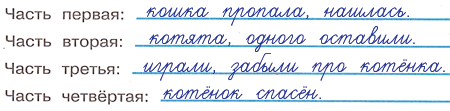 Часть первая: кошка пропала, нашлась.
Часть вторая: котята, одного оставили.
Часть третья: играли, забыли про котёнка.
Часть четвёртая: котёнок спасён.